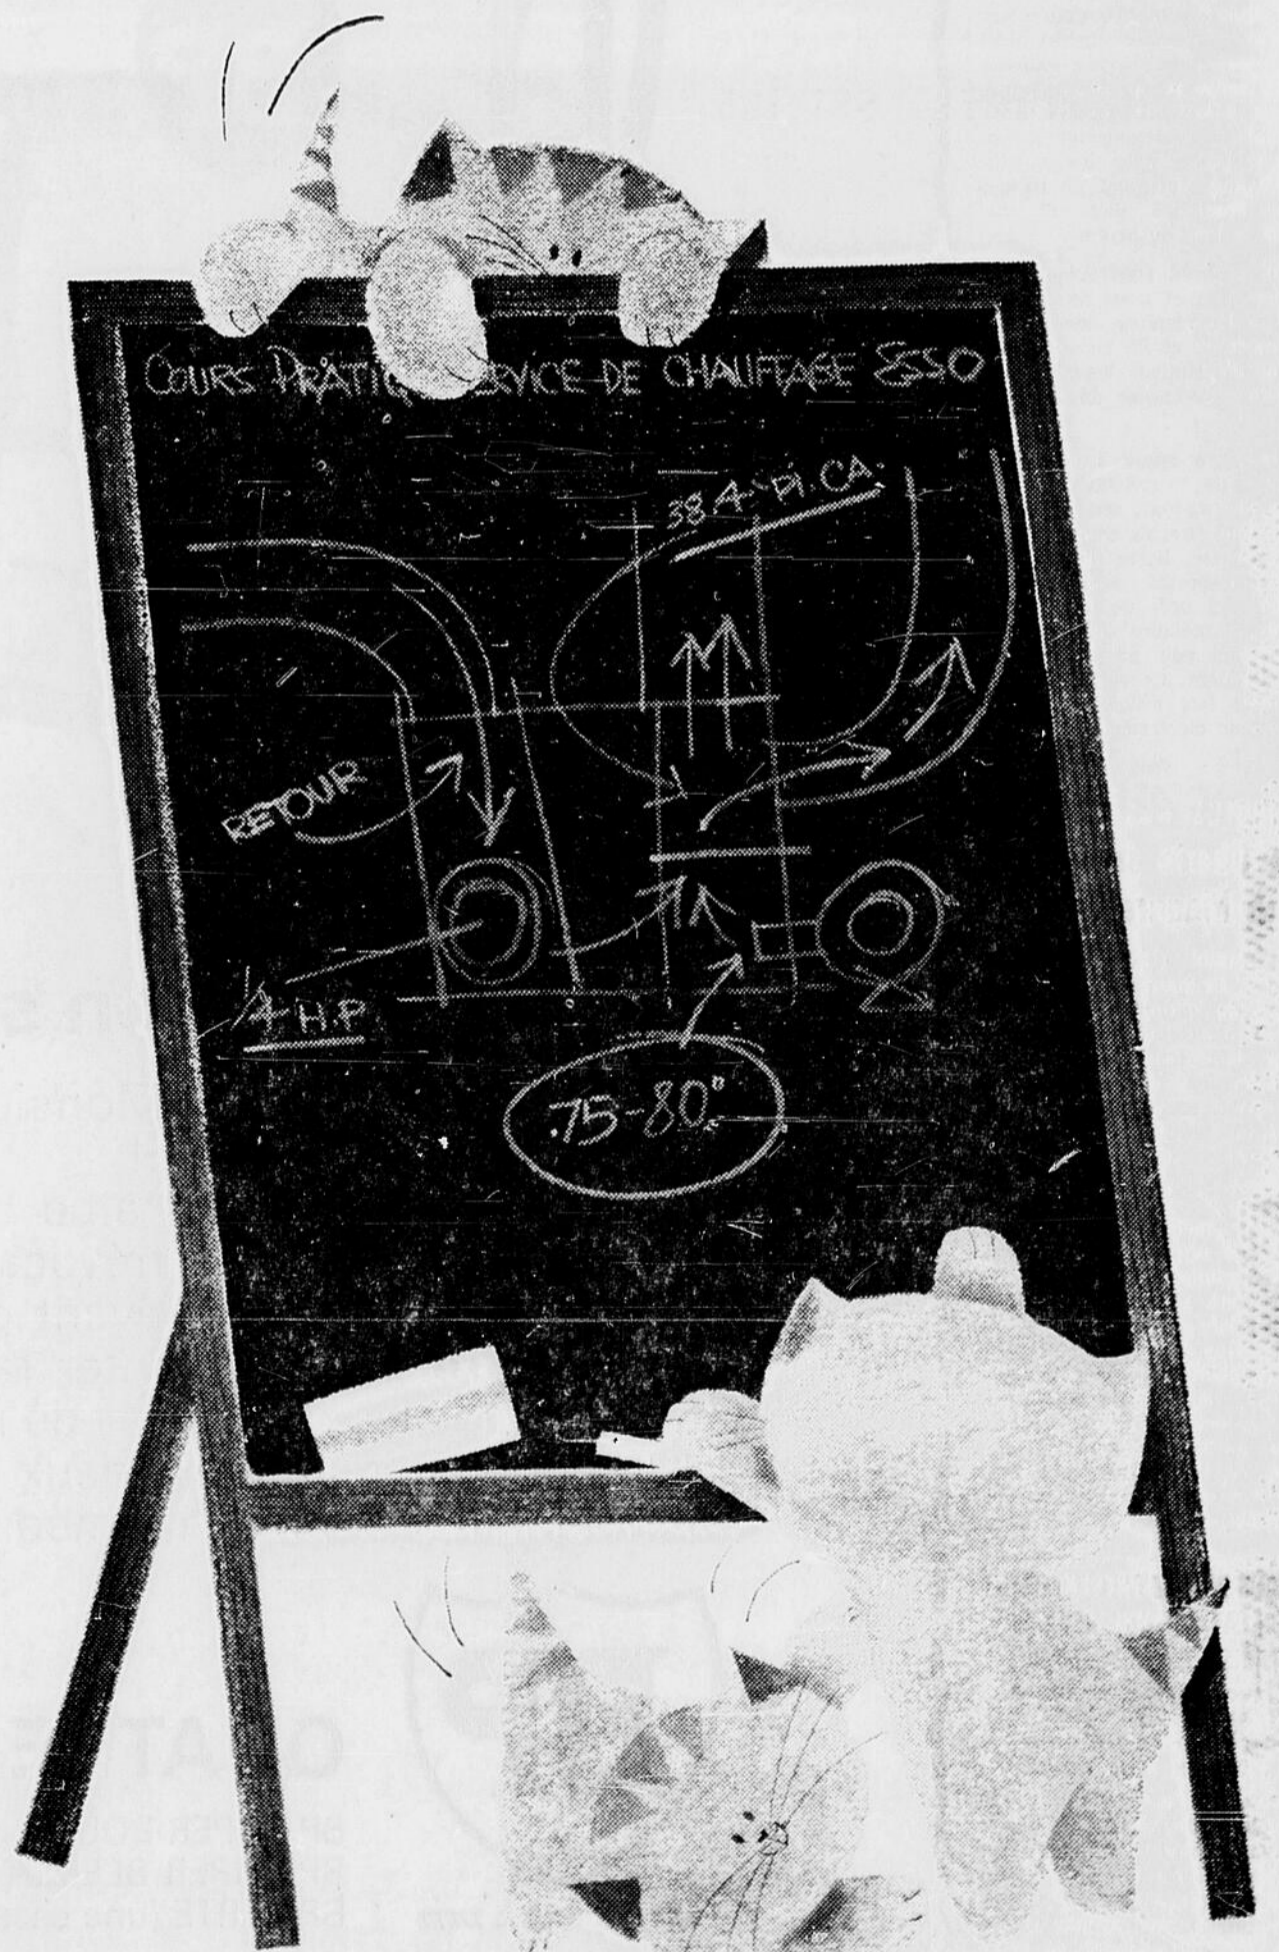 COURS PRATIQ ERVICE DE CHAUFFAGE ESSO
38.4 PI. CA.
RETOUR
1/4 H.P.
.75-80°